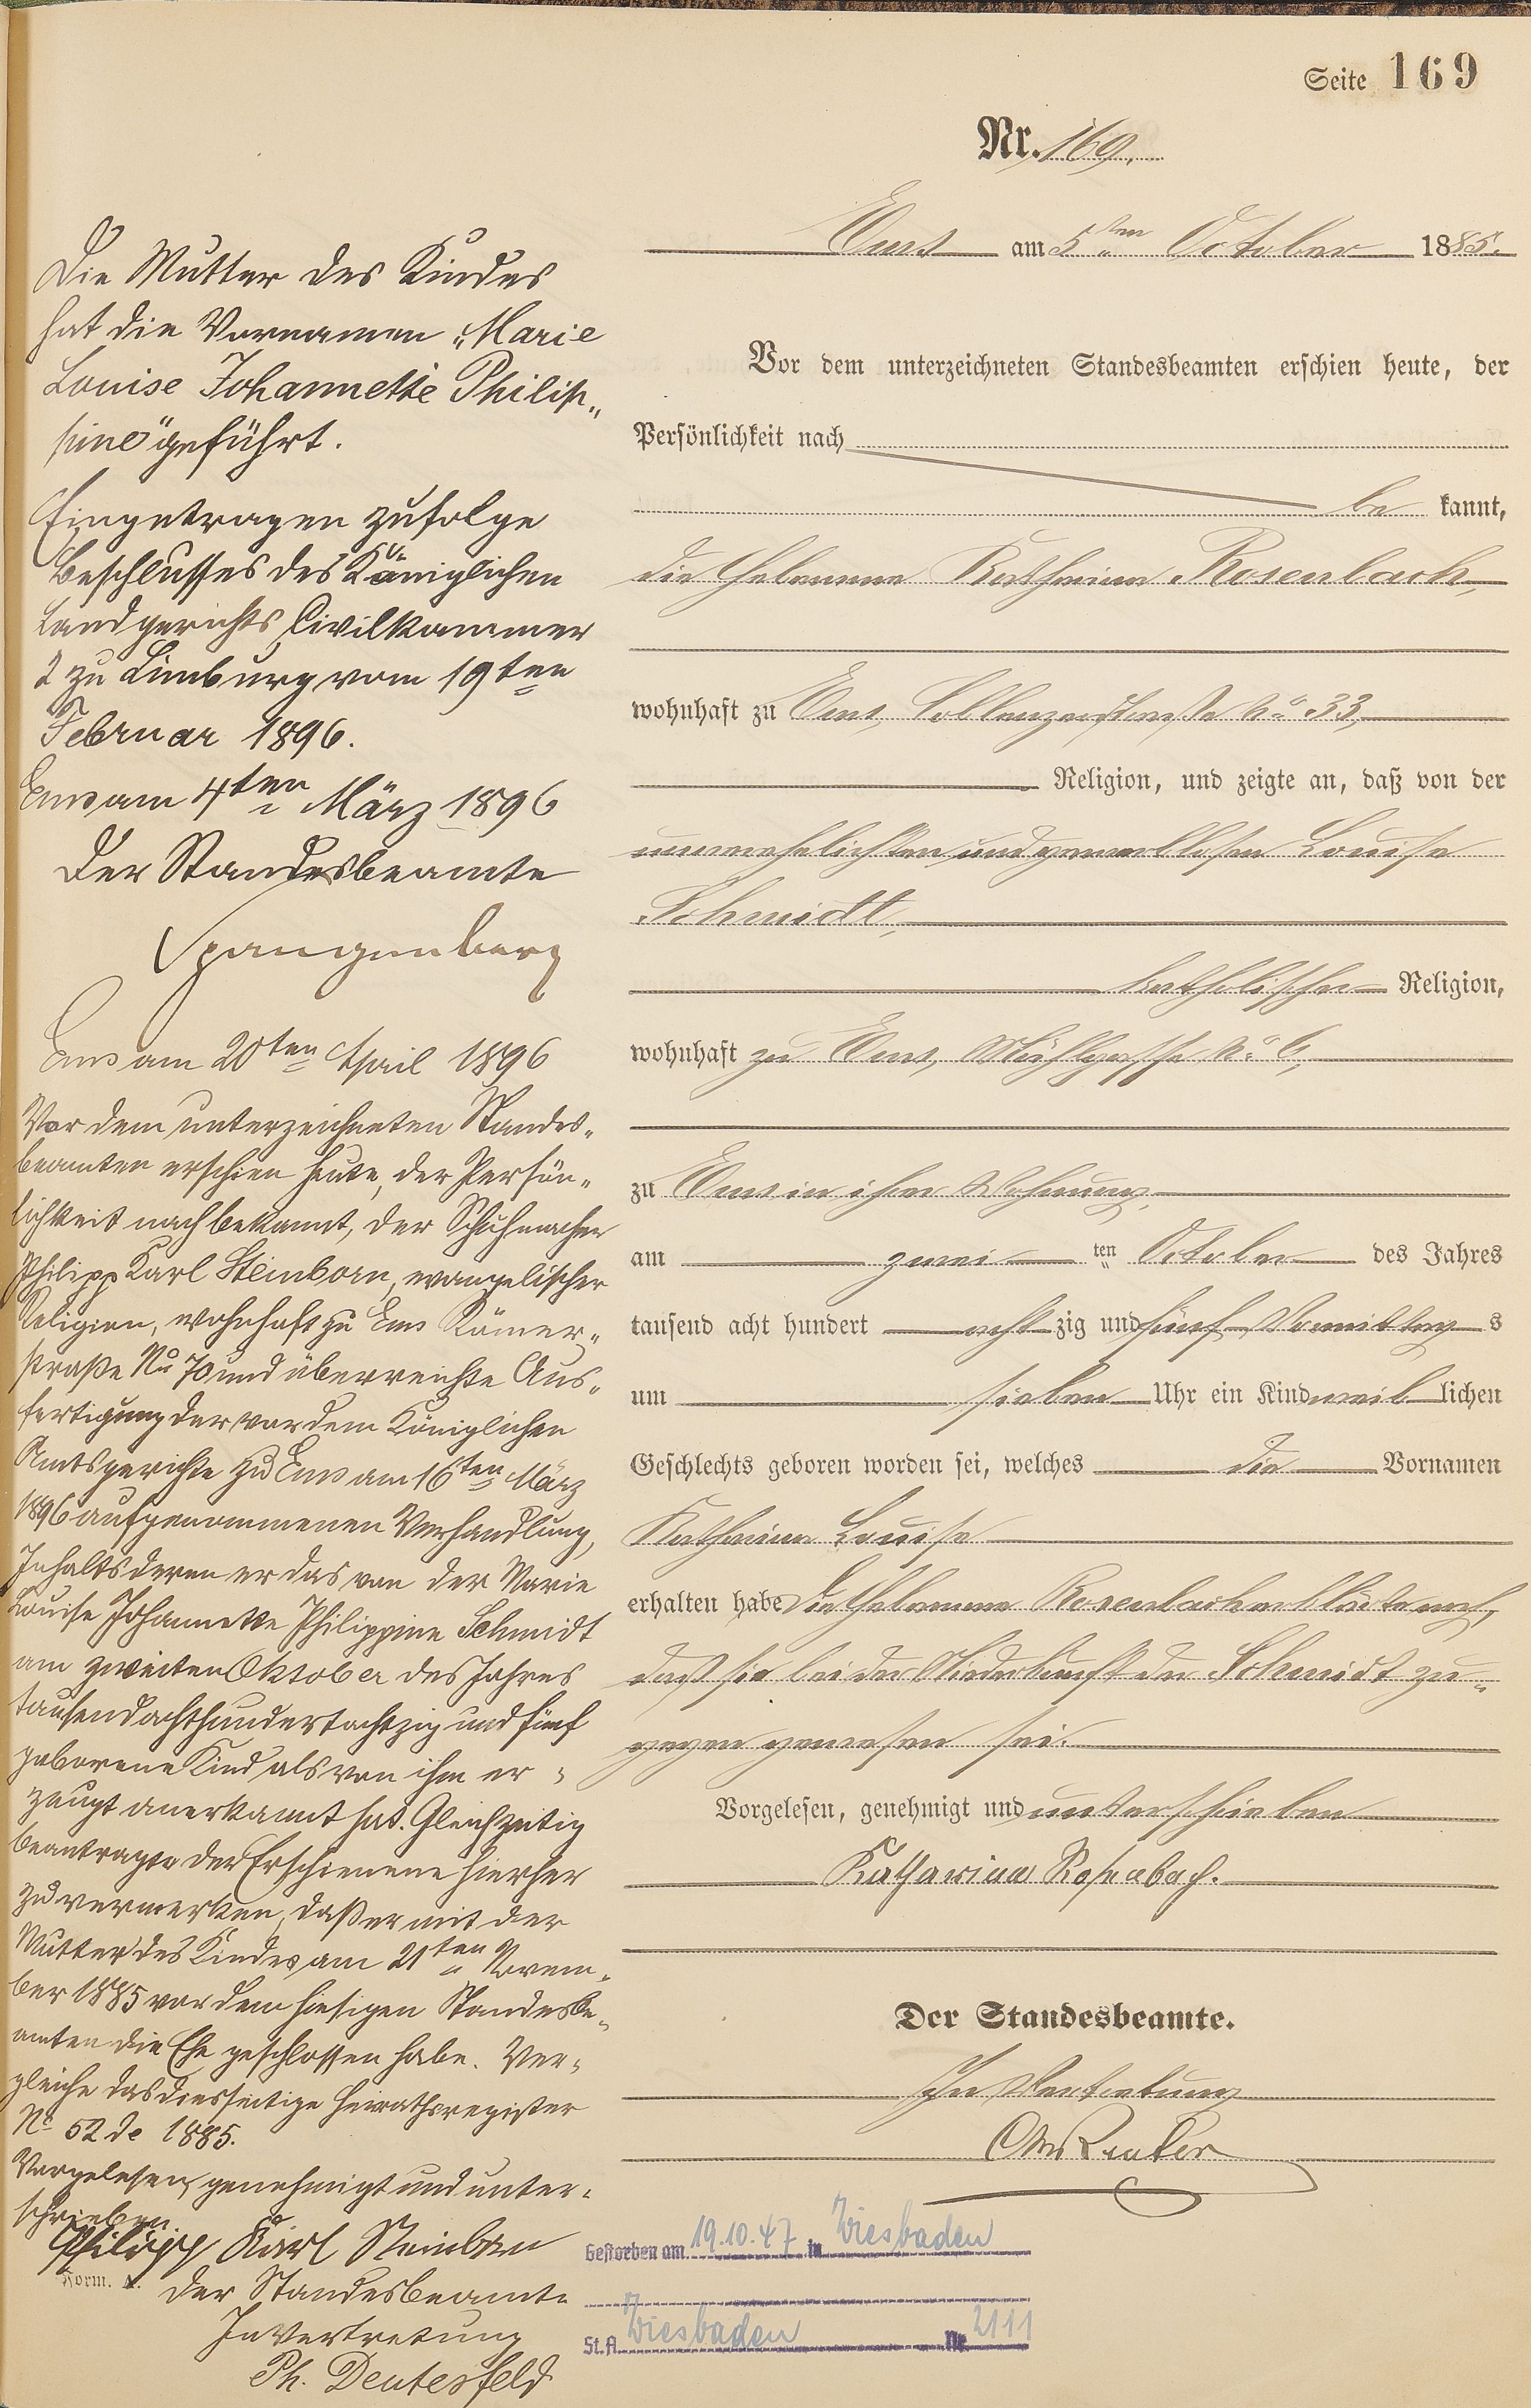 Seite 169
Nr. 169.
Ems am 5ten October 1885.
Vor dem unterzeichneten Standesbeamten erschien heute, der
Persönlichkeit nach
be kannt,
die Hebamme Katharina Rosenbach,
wohnhaft zu Ems, Coblenzerstraße No 33,
Religion, und zeigte an, daß von der
unverehelichten und gewerblosen Louise
Schmidt,
katholischer Religion,
wohnhaft zu Ems, Mühlgasse No 6,
zu Ems in ihrer Wohnung,
am zwei ten October des Jahres
tausend acht hundert acht zig und fünf Vormittag s
um sieben Uhr ein Kind weib lichen
Geschlechts geboren worden sei, welches die Vornamen
Katharina Louise
erhalten habe Die Hebamme Rosenbach erklärte noch,
daß sie bei der Niederkunft der Schmidt zu-
gegen gewesen sei.
Vorgelesen, genehmigt und unterschrieben
Katharina Rosenbach.
Der Standesbeamte.
In Vertretung
Gestorben am 19.10.47 in Wiesbaden
St.A. Wiesbaden Nr. 2111
Die Mutter des Kindes
hat die Vornamen „Marie
Louise Johannette Philip-
pine" geführt.
Eingetragen zufolge
Beschlusses des Königlichen
Landgerichts, Civilkammer
2 zu Limburg vom 19ten
Februar 1896.
Ems am 4ten März 1896
Der Standesbeamte
Spangenberg
Ems am 20ten April 1896
Vor dem unterzeichneten Standes-
beamten erschien heute, der Persön-
lichkeit nach bekannt, der Schuhmacher
Philipp Karl Steinborn, evangelischer
Religion, wohnhaft zu Ems Römer-
straße No 70 und überreichte Aus-
fertigung der vor dem Königlichen
Amtsgerichte zu Ems am 16ten März
1896 aufgenommenen Verhandlung,
Inhalts deren er das von der Marie
Louise Johannette Philippine Schmidt
am zweiten Oktober des Jahres
tausendachthundertachtzig und fünf
geborene Kind als von ihm er-
zeugt anerkannt hat. Gleichzeitig
beantragte der Erschienene hierher
zu vermerken, daß er mit der
Mutter des Kindes am 21ten Novem-
ber 1885 vor dem hiesigen Standesbe-
amten die Ehe geschlossen habe. Ver-
gleiche das diesseitige Heirathsregister
No 52 de 1885.
Vorgelesen, genehmigt und unter-
schrieben
Philipp Karl Steinborn
Form. A.
Der Standesbeamte
In Vertretung
Ph. Deutesfeld